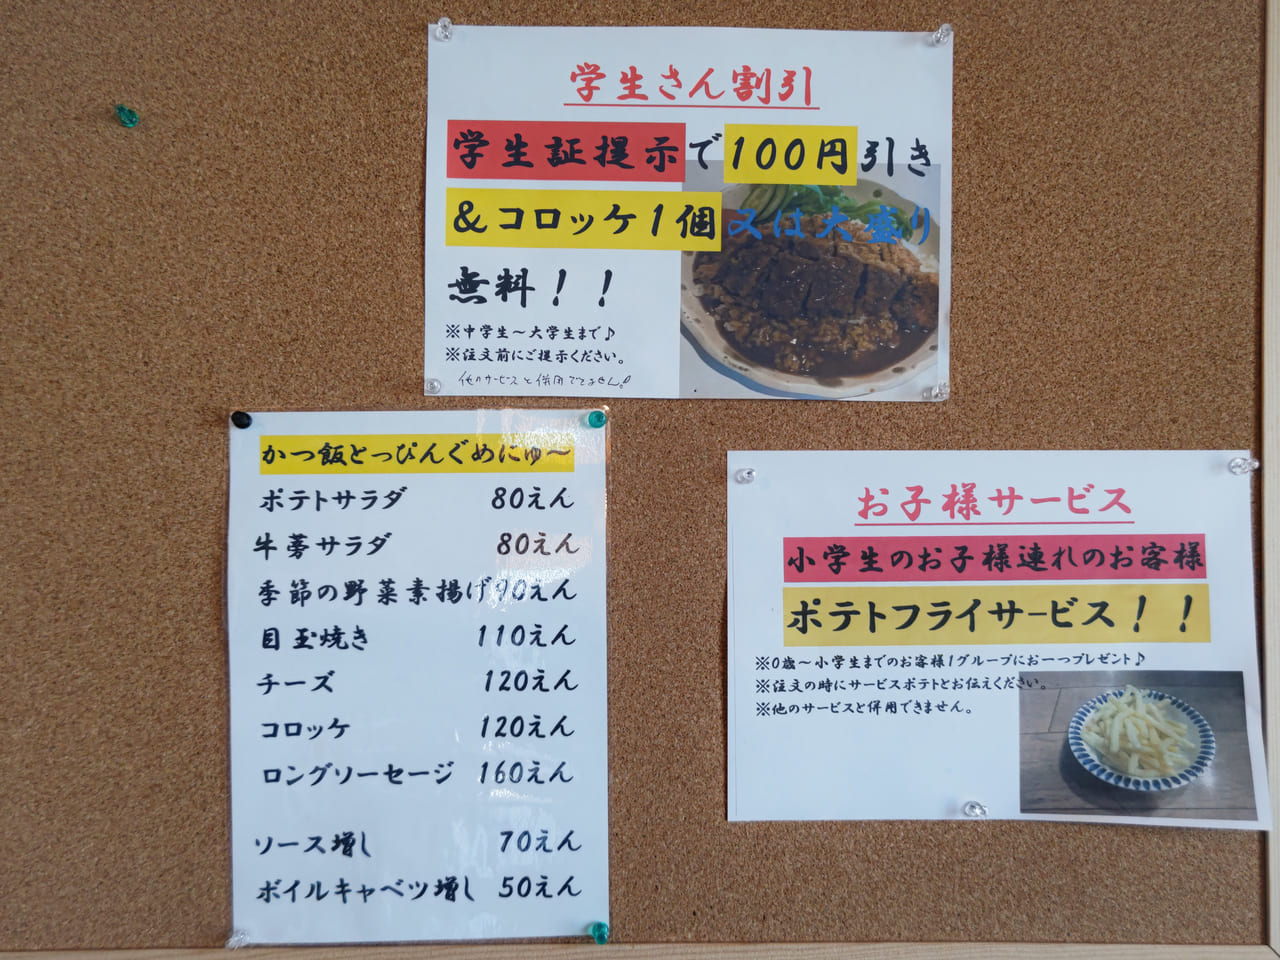 学生さん割引
学生証提示で100円引き
&コロッケ1個又は大盛り
無料!!
※中学生～大学生まで♪
※注文前にご提示ください。
他のサービスと併用できません。
かつ飯とっぴんぐめにゅ～
ポテトサラダ 80えん
牛蒡サラダ 80えん
季節の野菜素揚げ90えん
目玉焼き 110えん
チーズ 120えん
コロッケ 120えん
ロングソーセージ 160えん
ソース増し 70えん
ボイルキャベツ増し 50えん
お子様サービス
小学生のお子様連れのお客様
ポテトフライサービス!!
※0歳～小学生までのお客様1グループにお一つプレゼント♪
※注文の時にサービスポテトとお伝えください。
※他のサービスと併用できません。